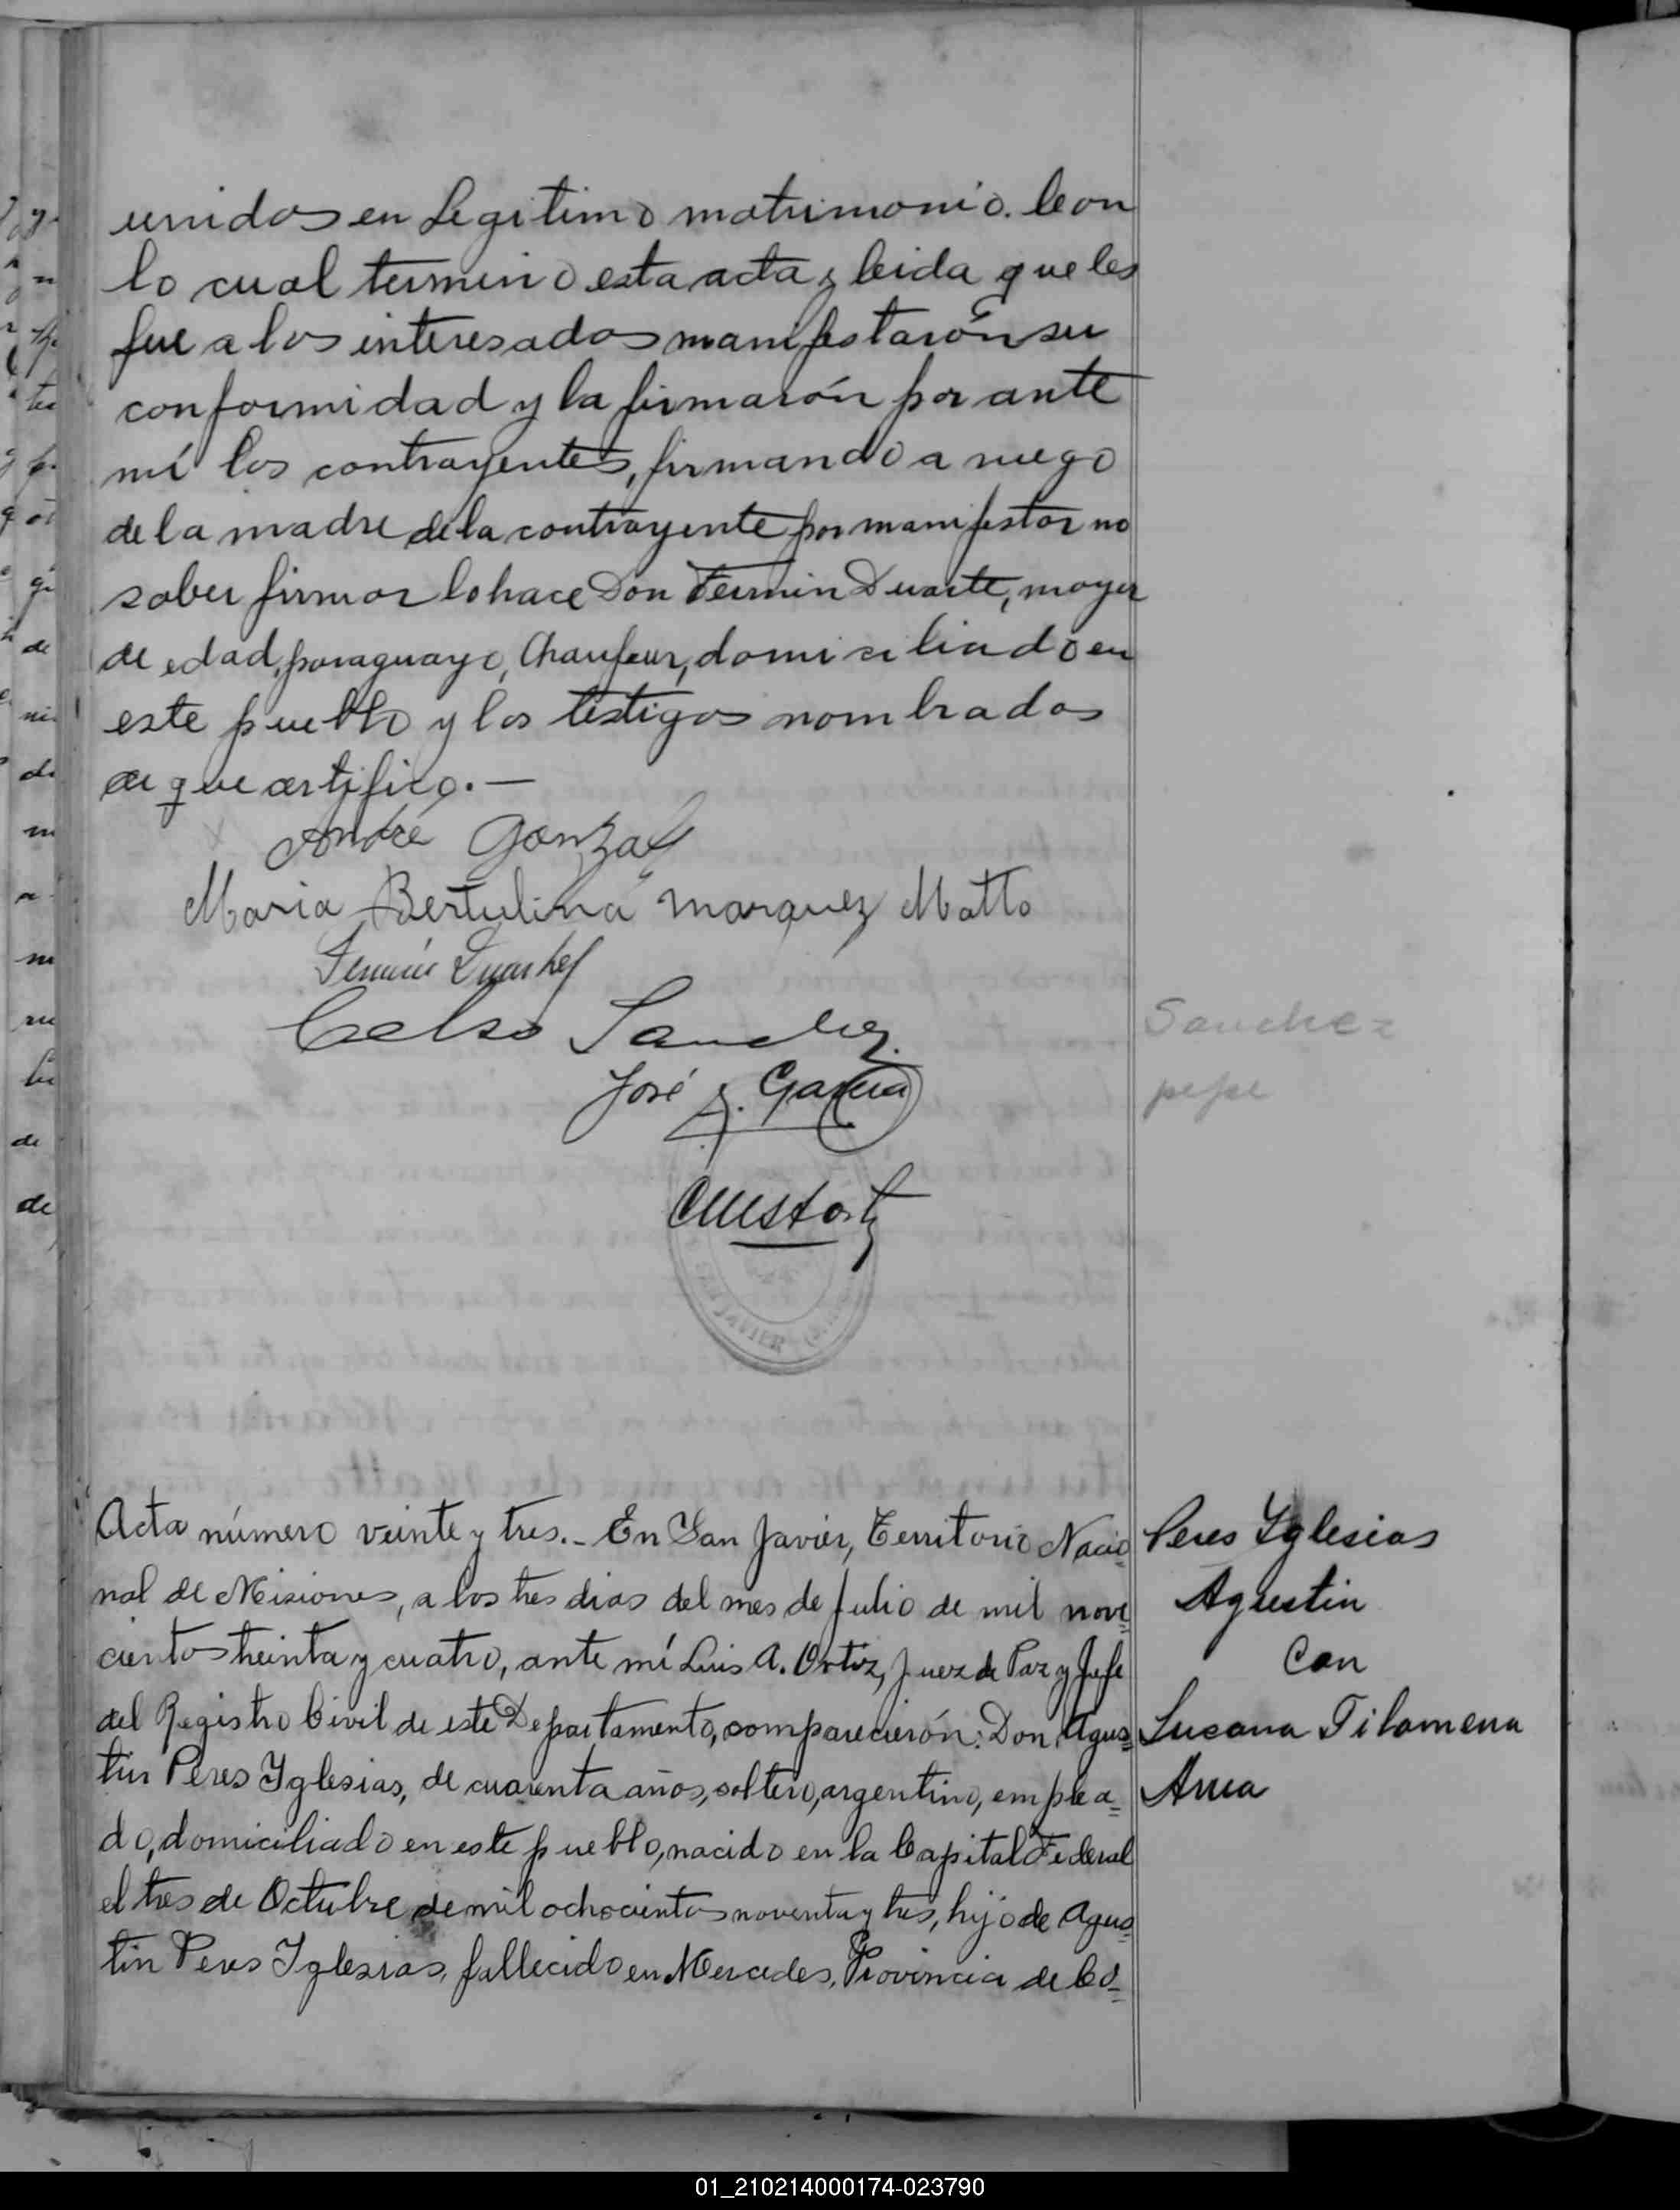 unidos en Legitimo matrimonio. Con
lo cual termino esta acta y leida que les
fue a los interesados manifestarón su
conformidad y la firmarón por ante
mí los contrayentes, firmando a ruego
de la madre de la contrayente por manifestar no
saber firmar lo hace Don Fermin Duarte, mayor
de edad, paraguayo, Chaufeur, domiciliado en
este pueblo y los testigos nombrados
de que certifico.—
André Gonzal
Maria Bertulina Marquez Matto
Fermin Duarte
Celso Sanchez.
José Garcia
SAN JAVIER
Sanchez
pepe
Acta número veinte y tres.- En San Javier, Territorio Nacio
nal de Misiones, a los tres dias del mes de Julio de mil nove
cientos treinta y cuatro, ante mí Luis A. Ortiz, Juez de Paz y Jefe
del Registro Civil de este Departamento, comparecierón: Don Agus=
tin Peres Yglesias, de cuarenta años, soltero, argentino, emplea=
do, domiciliado en este pueblo, nacido en la Capital Federal
el tres de Octubre de mil ochocientos noventa y tres, hijo de Agus
tin Peres Yglesias, fallecido en Mercedes, Provincia de Co=
Peres Yglesias
Agustin
Con
Lucana Filomena
01_210214000174-023790